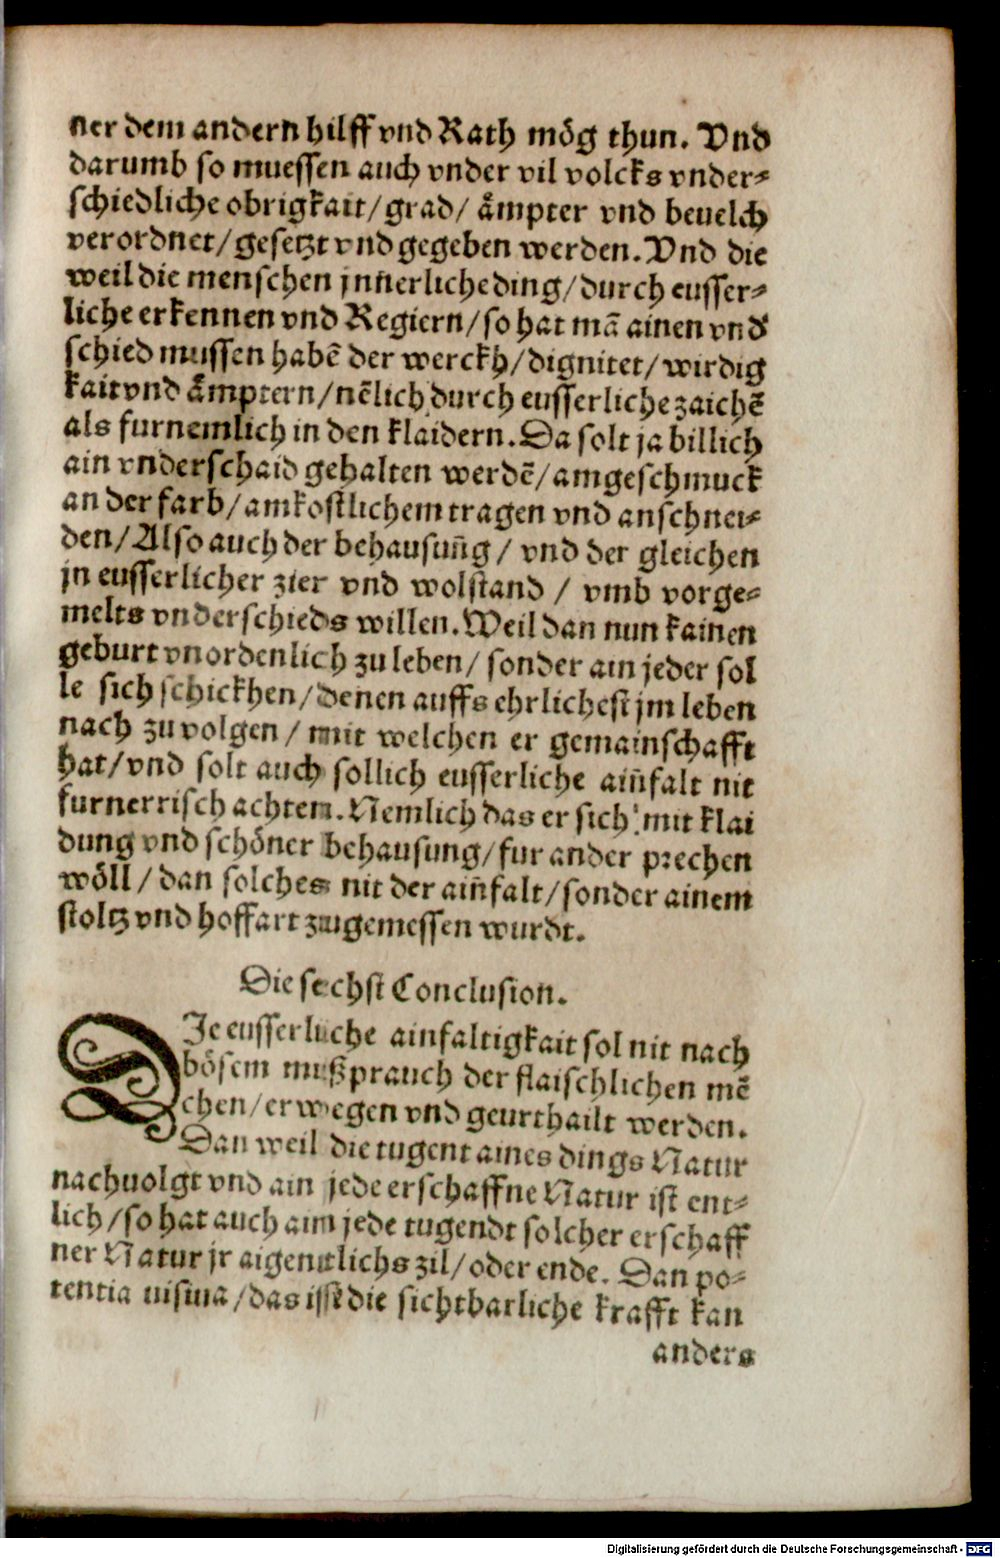 ner dem andern hilff vnd Rath mög thun. Vnd
darumb so muessen auch vnder vil volcks vnder⸗
schiedliche obrigkait/grad/ åmpter vnd beuelch
verordnet/gesetzt vnd gegeben werden. Vnd die
weil die menschen jnñerliche ding/durch eusser⸗
liche erkennen vnd Regiern/so hat mā ainen vnd
schied mussen habē der werckh/dignitet/wirdig
kait vnd åmptern/nēlich durch eusserliche zaichē
als furnemlich in den klaidern. Da solt ja billich
ain vnderschaid gehalten werdē/am geschmuck
an der farb/am kostlichem tragen vnd anschnei⸗
den/Also auch der behausuñg/ vnd der gleichen
jn eusserlicher zier vnd wolstand / vmb vorge⸗
melts vnderschieds willen. Weil dan nun kainen
geburt vnordenlich zu leben/ sonder ain jeder sol
le sich schickhen/denen auffs ehrlichest jm leben
nach zu volgen / mit welchen er gemainschafft
hat/vnd solt auch sollich eusserliche aiñfalt nit
furnerrisch achten. Nemlich das er sich mit klai
dung vnd schöner behausung/fur ander prechen
wöll/dan solches nit der aiñfalt/sonder ainem
stoltz vnd hoffart zugemessen wurdt.
Die sechst Conclusion.
DJe eusserliche ainfaltigkait sol nit nach
bösem mußprauch der flaischlichen mē
schen/erwegen vnd geurthailt werden.
Dan weil die tugent aines dings Natur
nachuolgt vnd ain jede erschaffne Natur ist ent⸗
lich/so hat auch ain jede tugendt solcher erschaff
ner Natur jr aigentlichs zil/oder ende. Dan po⸗
tentia uisiua/das ist die sichtbarliche krafft kan
anders
Digitalisierung gefördert durch die Deutsche Forschungsgemeinschaft - DFG